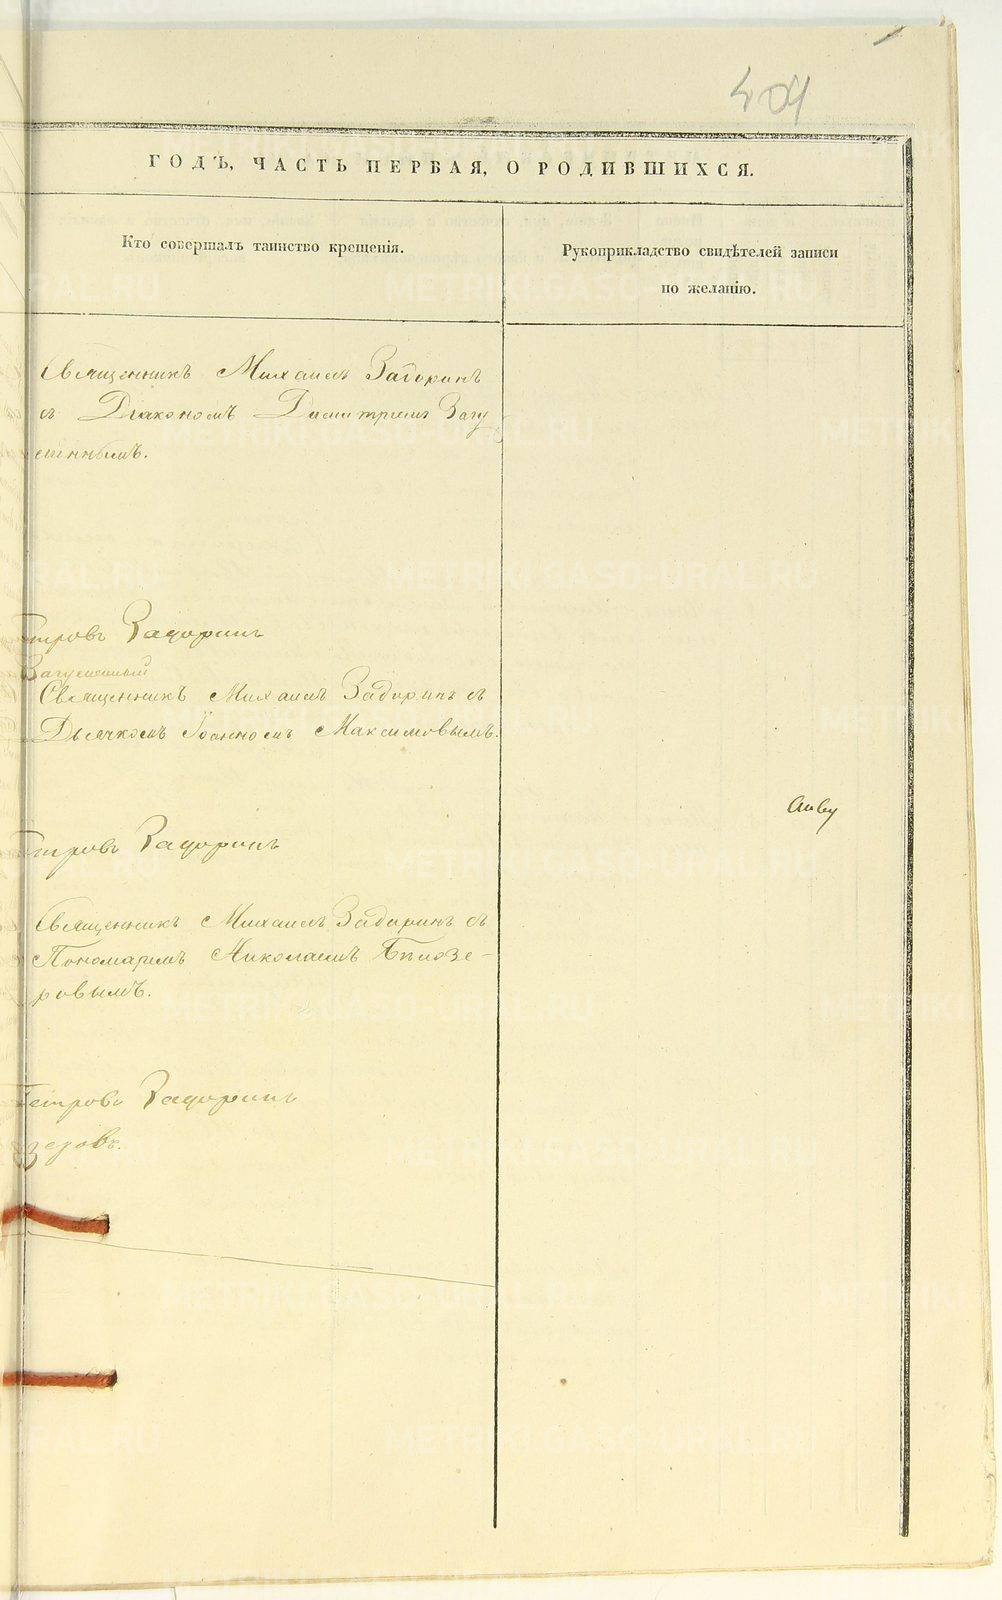 404
ГОДЪ, ЧАСТЬ ПЕРВАЯ, О РОДИВШИХСЯ.
Кто совершалъ таинство крещенія.
Рукоприкладство свидѣтелей записи
по желанію.
Священникъ Михаилъ Задоринъ
съ Діакономъ Димитріемъ Загу
меннымъ.
Петровъ Задоринъ
Загуменный
Священникъ Михаилъ Задоринъ съ
Дьячкомъ Іоанномъ Максимовымъ.
Петровъ Задоринъ
Священникъ Михаилъ Задоринъ съ
Пономаремъ Николаемъ Бѣлозе-
ровымъ.
Петровъ Задоринъ
зеровъ.
METRIKI.GASO-URAL.RU